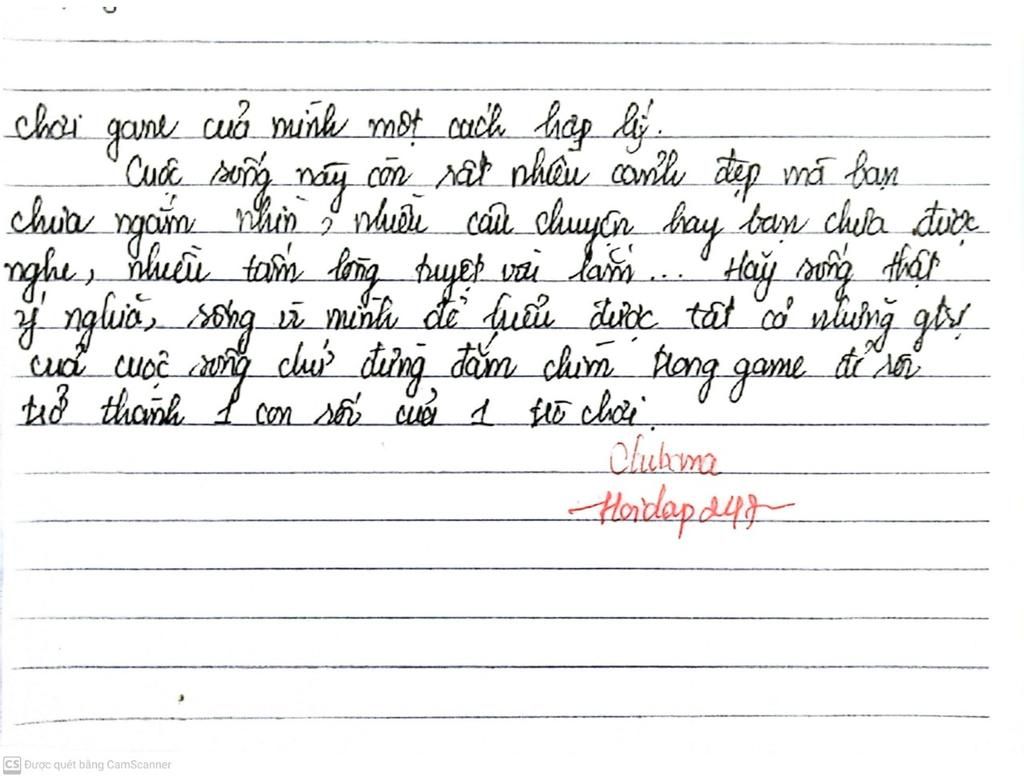 chơi game của mình một cách hợp lý.
Cuộc sống này còn rất nhiều cảnh đẹp mà bạn
chưa ngắm nhìn, nhiều câu chuyện hay bạn chưa được
nghe, nhiều tấm lòng tuyệt vời lắm... Hãy sống thật
ý nghĩa, sống vì mình để hiểu được tất cả những
của cuộc sống chứ đừng đắm chìm trong game để rồi
trở thành 1 con rối của 1 trò chơi.
Hoidap247
CS Được quét bằng CamScanner